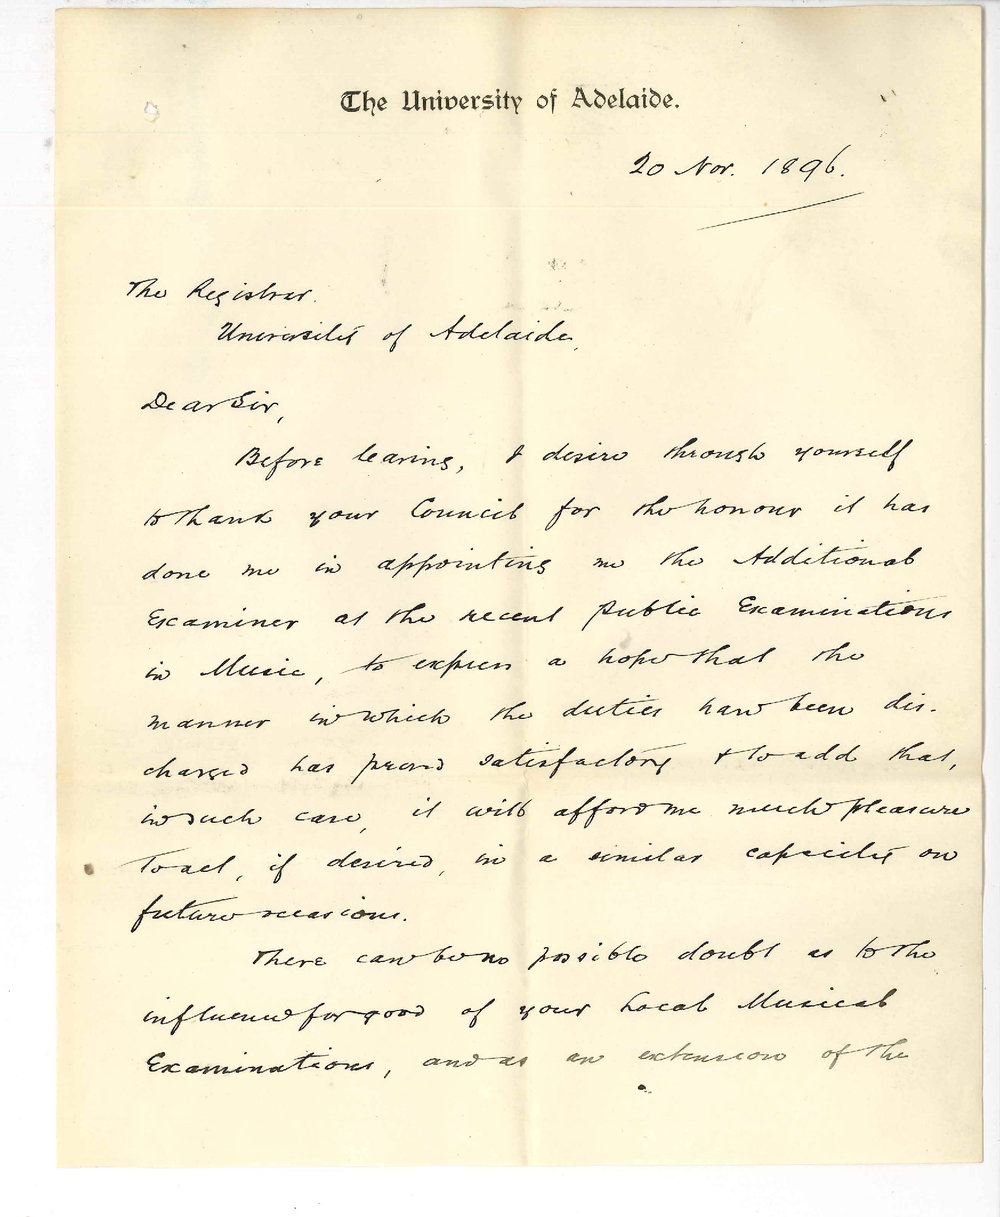 The University of Adelaide.
20 Nov. 1896.
The Registrar.
University of Adelaide,
Dear Sir,
Before leaving, I desire through yourself
to thank your Council for the honour it has
done me in appointing me the Additional
Examiner at the recent Public Examinations
in Music, to express a hope that the
manner in which the duties have been dis-
charged has proved satisfactory & to add that,
in such case, it will afford me much pleasure
to act, if desired, in a similar capacity on
future occasions.
There can be no possible doubt as to the
influence for good of your Local Musical
Examinations, and as an extension of the